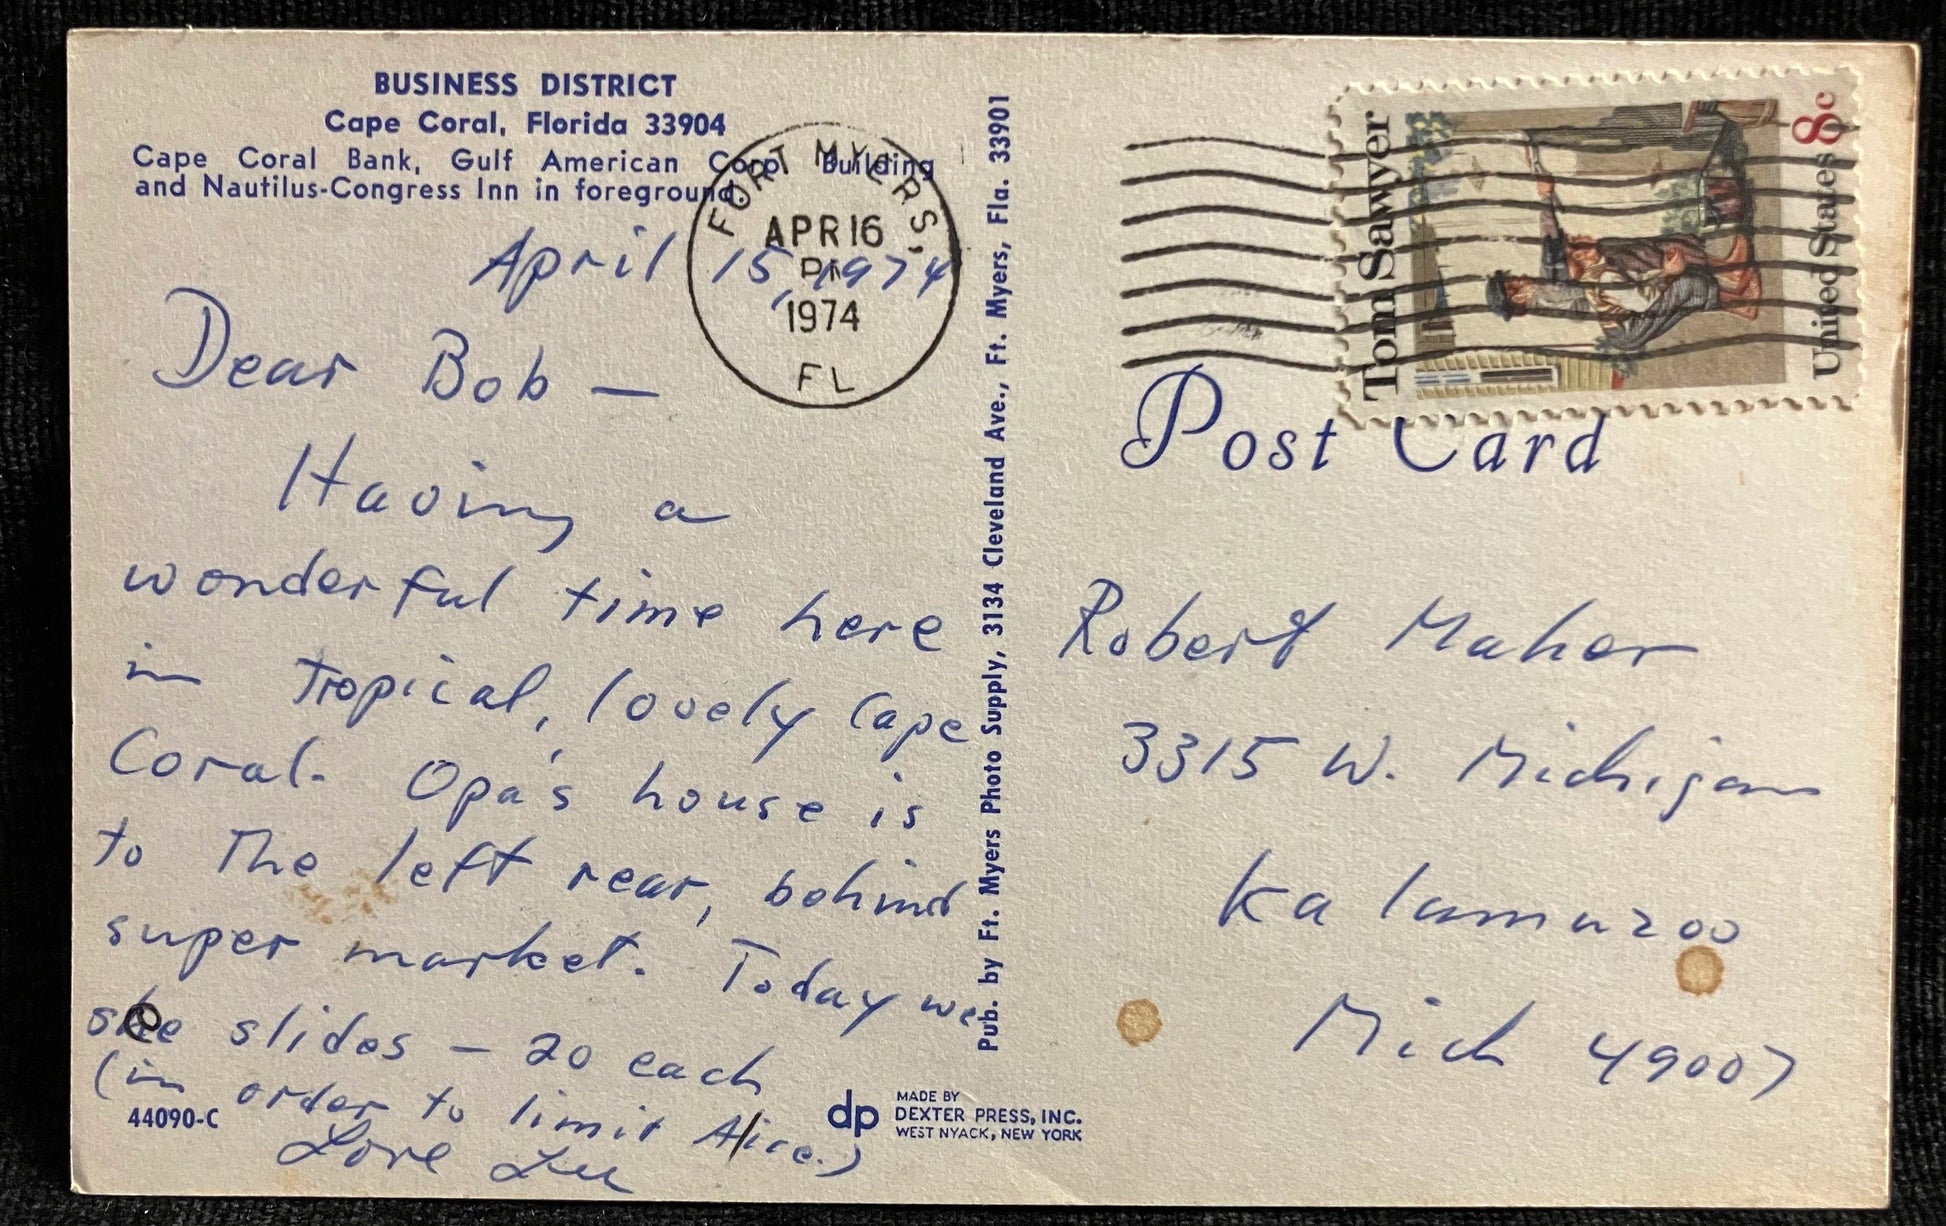 BUSINESS DISTRICT
Cape Coral, Florida 33904
Cape Coral Bank, Gulf American Corp. Building
and Nautilus-Congress Inn in foreground.
April 15, 1974
Dear Bob —
Having a
wonderful time here
in tropical, lovely Cape
Coral. Opa's house is
to the left rear, behind
super market. Today we
slides — 20 each
(in order to limit Alice.)
Love Lu
44090-C
FORT MYERS,
APR 16
PM
1974
FL
Pub. by Ft. Myers Photo Supply, 3134 Cleveland Ave., Ft. Myers, Fla. 33901
dp
MADE BY
DEXTER PRESS, INC.
WEST NYACK, NEW YORK
Tom Sawyer
United States 8c
Post Card
Robert Maher
3315 W. Michigan
Kalamazoo
Mich 49007